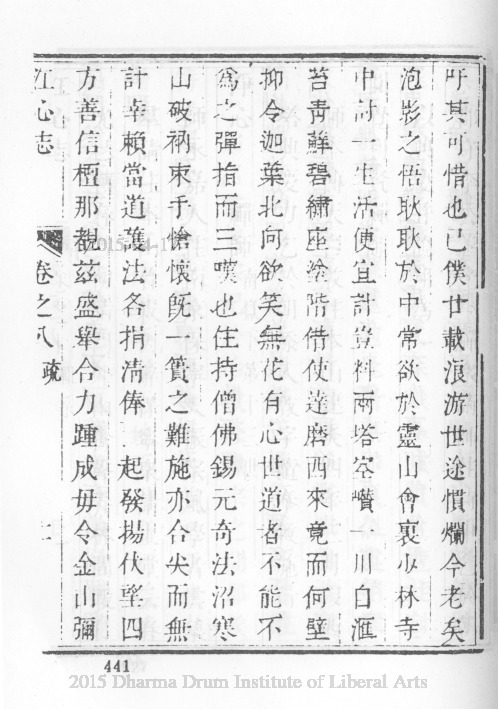 吁其可惜也已僕廿載浪游世途慣爛今老矣
泡影之悟耿耿於中常欲於靈山會裏少林寺
中討一生活便宜計豈料兩塔空巑一川白滙
苔青蘚碧繡座塗階借使達磨西來竟而何壁
抑令迦葉北向欲笑無花有心世道者不能不
爲之彈指而三嘆也住持僧佛錫元奇法沼寒
山破衲束手愴懷旣一簣之難施亦合尖而無
計幸賴當道護法各捐淸俸 起發揚伏望四
方善信檀那覩茲盛舉合力踵成毋令金山彌
江心志
卷之八 疏
441
2015 Dharma Drum Institute of Liberal Arts